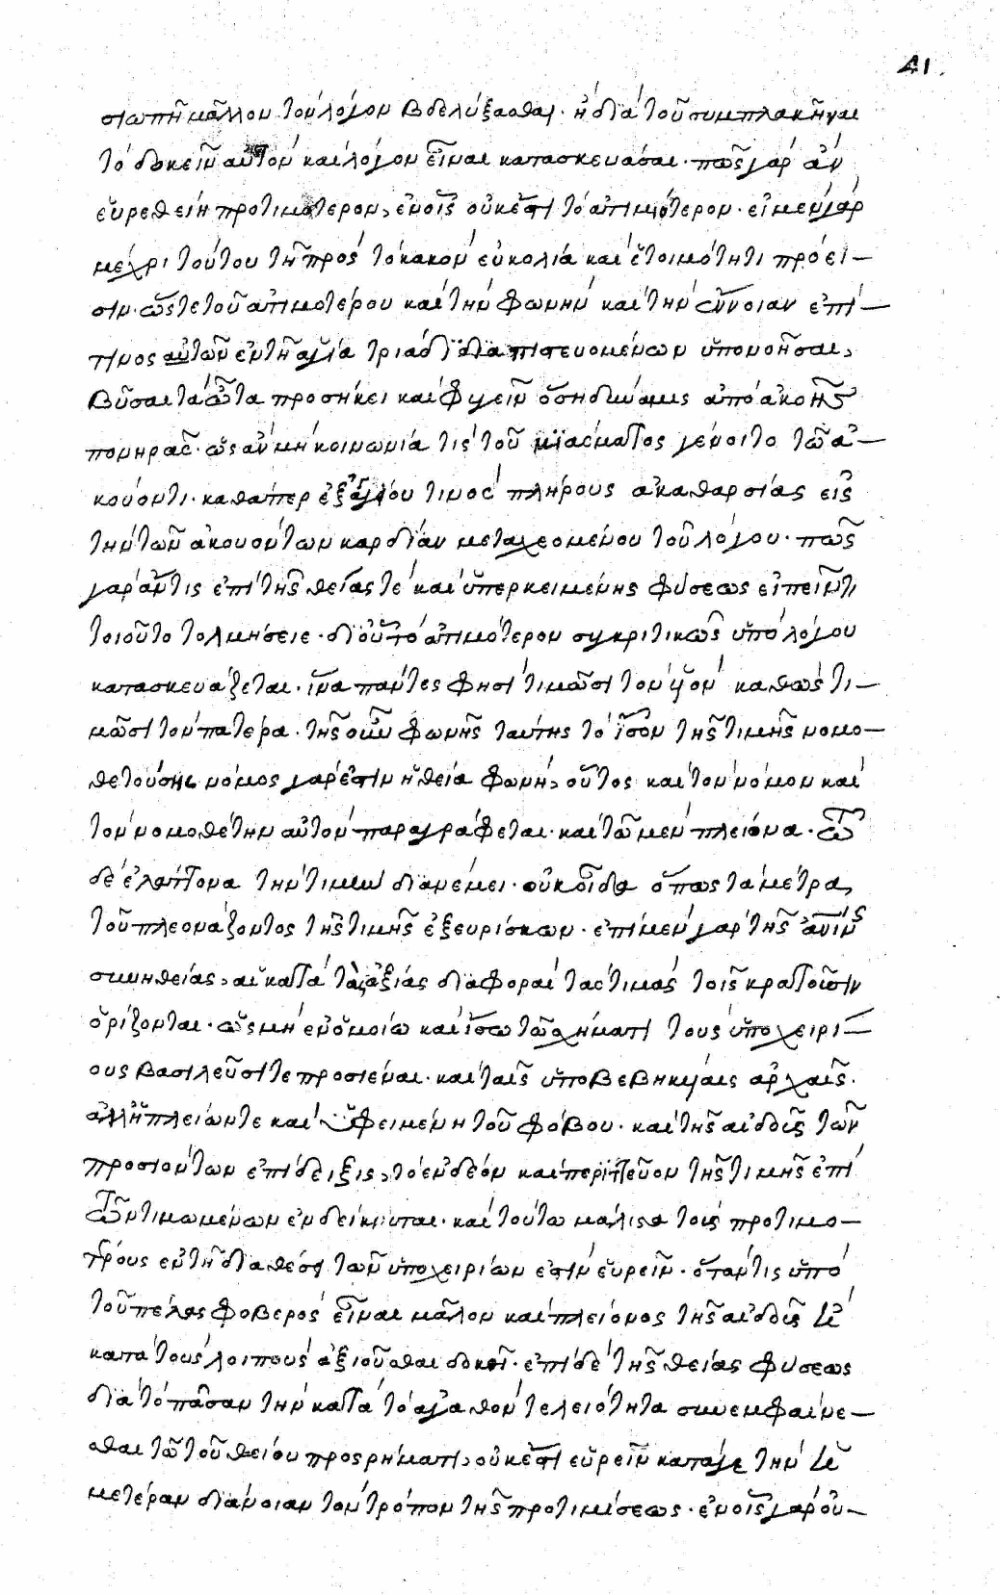 41.
σιωπῇ μᾶλλον τὸν λόγον βδελύξασθαι· ἢ διὰ τοῦ συμπλακῆναι
τὸ δοκεῖν αὐτὸν καὶ λόγον εἶναι κατασκευάσαι· πῶς γὰρ ἂν
εὑρεθείη προτιμότερον, ἐν οἷς οὐκ ἔστι τὸ ἀτιμότερον· εἰ μὲν γὰρ
μέχρι τούτου τῇ πρὸς τὸ κακὸν εὐκολίᾳ καὶ ἑτοιμότητι πρόεί—
σιν· ὥστε τοῦ ἀτιμοτέρου καὶ τὴν φωνὴν καὶ τὴν ἔννοιαν ἐπί—
τινος αὐτῶν ἐν τῇ ἁγίᾳ τριάδι διαπιστευομένων ὑπονοῆσαι,
βῦσαι τὰ ὦτα προσήκει καὶ φυγεῖν ὅση δύναμις ἀπὸ ἀκοῆς
πονηρᾶς· ὡς ἂν μὴ κοινωνία τις τοῦ μιάσματος γένοιτο τῷ ἀ—
κούοντι· καθάπερ ἐξ ἀγγείου τινὸς πλήρους ἀκαθαρσίας εἰς
τὴν τῶν ἀκουόντων καρδίαν μεταχεομένου τοῦ λόγου· πῶς
γὰρ ἄν τις ἐπὶ τῆς θείας τὲ καὶ ὑπερκειμένης φύσεως εἰπεῖν τι
τοιοῦτο τολμήσειε· δι οὗ τὸ ἀτιμότερον συγκριτικῶς ὑπὸ λόγου
κατασκευάζεται· ἵνα πάντες φησὶ τιμῶσι τὸν υἱὸν καθὼς τι—
μῶσι τὸν πατέρα· τῆς οὖν φωνῆς ταύτης τὸ ἴσον τῆς τιμῆς νομο—
θετούσης νόμος γάρ ἐστιν ἡ θεία φωνή, οὗτος καὶ τὸν νόμον καὶ
τὸν νομοθέτην αὐτὸν παραγράφεται· καὶ τῷ μὲν πλείονα· τῷ
δὲ ἐλάττονα τὴν τιμὴν διανέμει· οὐκ οἶδα ὅπως τὰ μέτρα,
τοῦ πλεονάζοντος τῆς τιμῆς ἐξευρίσκων· ἐπὶ μὲν γὰρ τῆς ἀνίνης
συνηθείας, αἱ κατὰ τὰς ἀξίας διαφοραὶ τὰς τιμὰς τοῖς κρατοῦσιν
ὁρίζονται· ὡς μὴ ἐν ὁμοίῳ καὶ ἴσῳ τῷ σχήματι τοὺς ὑποχειρί—
ους βασιλεῦσί τε προσιέναι· καὶ ταῖς ὑποβεβηκυίαις ἀρχαῖς·
ἀλλ ἡ πλείων τε καὶ ὑφειμένη τοῦ φόβου· καὶ τῆς αἰδοῦς τῶν
προσιόντων ἐπίδειξις, τὸ ἐνδεὸν καὶ περιττεῦον τῆς τιμῆς ἐπὶ
τῶν τιμωμένων ἐνδείκνυται· καὶ τούτῳ μάλιστα τοὺς προτιμο—
τέρους ἐν τῇ διαθέσει τῶν ὑποχειρίων ἐστὶν εὑρεῖν· ὅταν τις ὑπὸ
τοῦ πέλας φοβερὸς εἶναι μᾶλον καὶ πλείονος τῆς αἰδοῦς ἢ
κατὰ τοὺς λοιποὺς ἀξιοῦσθαι δοκῇ· ἐπὶ δὲ τῆς θείας φύσεως
διὰ τὸ πᾶσαν τὴν κατὰ τὸ ἀγαθὸν τελειότητα συνεμφαίνε—
σθαι τῷ τοῦ θείου προσρήματι, οὐκ ἔστι εὑρεῖν κατάγε τὴν ἡ
μετέραν διάνοιαν τὸν τρόπον τῆς προτιμήσεως· ἐν οἷς γὰρ οὐ—